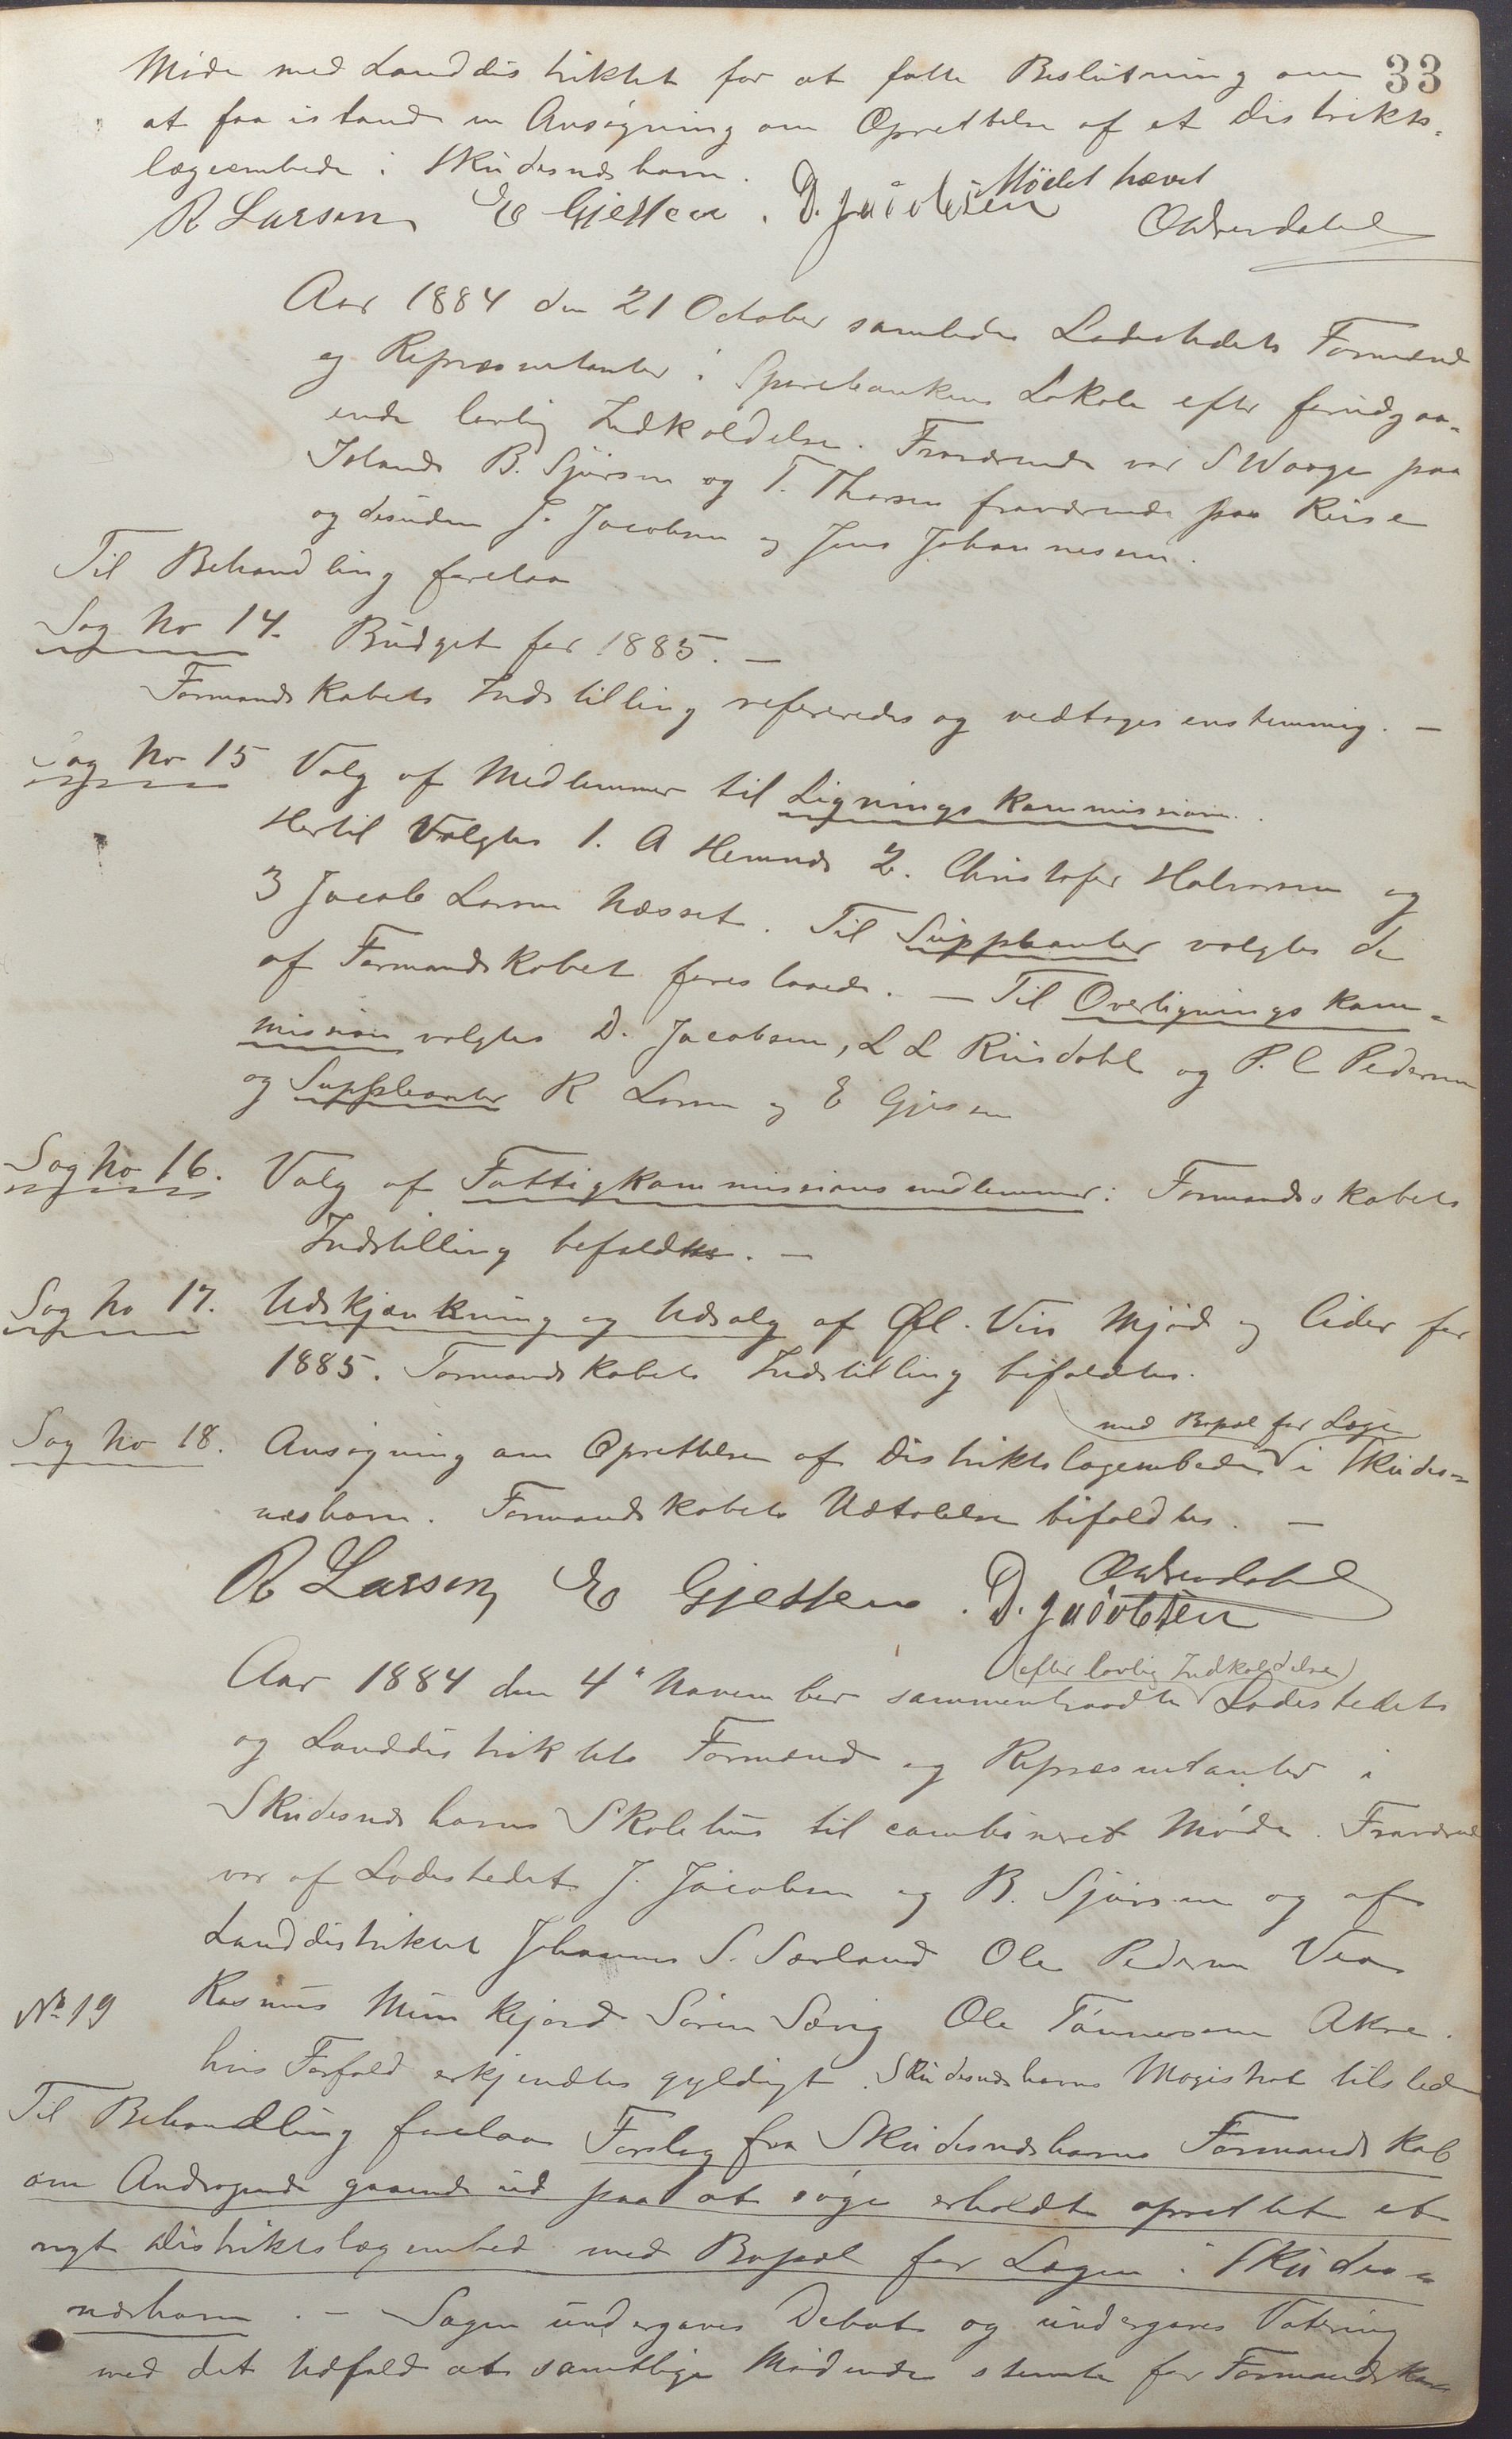 33
Møde med Landdistriktet for at fatte Beslutning om
at faa istand en Ansøgning om Oprettelse af et Distrikts-
lægeembede i Skudesneshavn.
Mødet hævet
R Larsen E Gjessen. D. Jacobsen
Aar 1884 den 21 October samledes Ladestedets Formænd
og Repræsentanter i Sparebankens Lokale efter forudgaa-
ende lovlig Indkaldelse. Fraværende var S Waage paa
Island B. Sjursen og T. Thorsen fraværende paa Reise
og desuden J. Jacobsen og Jens Johannesen.
Til Behandling forelaa
Sag No 14. Budget for 1885. —
Formandskabets Indstilling refereredes og vedtoges enstemmig. —
Sag No 15 Valg af Medlemmer til Ligningskommission.
Hertil Valgtes 1. A Hemnes 2. Christofer Halvorsen og
3 Jacob Larsen Næsset. Til Suppleanter valgtes de
af Formandskabet foreslaaede. — Til Overligningskom-
mission valgtes D. Jacobsen, L L Riisdahl og P. C Pedersen
og Suppleanter R Larsen og E Gjessen
Sag No 16. Valg af Fattigkommissionsmedlemmer: Formandskabets
Indstilling bifaldtes. —
Sag No 17. Udskjænkning og Udsalg af Øl. Vin Mjød og Cider for
1885. Formandskabets Indstilling bifaldtes.
med Bopæl for Læge
Sag No 18. Ansøgning om Oprettelse af Distriktslægembede i Skudes-
neshavn. Formandskabets Udtalelse bifaldtes. —
R Larsen E Gjessen. D. Jacobsen
(efter lovlig Indkaldelse)
Aar 1884 den 4' November sammentraadte Ladestedets
og Landdistriktets Formænd og Repræsentanter i
Skudesneshavns Skolehus til combineret Møde. Fraværend
var af Ladestedet J. Jacobsen og B. Sjursen og af
Landdistriktet Johannes S. Sørland Ole Pedersen Vea
No 19 Rasmus Munkejord Søren Sævig Ole Tønnesen Akre.
hvis Forfald erkjendtes gyldigt. Skudesneshavns Magistrat tilstede
Til Behandling forelaa Forslag fra Skudesneshavns Formandskab
om Andragende gaaende ud paa at søge erholdt oprettet et
nyt Distriktslægembed med Bopæl for Lægen i Skudes-
neshavn. — Sagen undergaves Debat og undergaves Votering
med det Udfald at samtlige Mødende stemte for Formandska